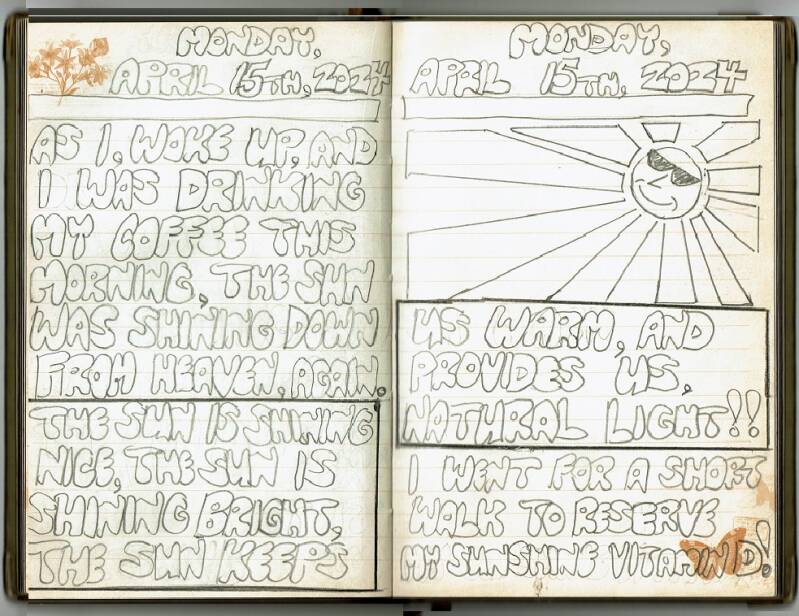 MONDAY,
APRIL 15TH, 2024
AS I, WOKE UP, AND
I WAS DRINKING
MY COFFEE THIS
MORNING, THE SUN
WAS SHINING DOWN
FROM HEAVEN, AGAIN.
THE SUN IS SHINING
NICE, THE SUN IS
SHINING BRIGHT,
THE SUN KEEPS
MONDAY,
APRIL 15TH, 2024
US WARM, AND
PROVIDES US,
NATURAL LIGHT!!
I WENT FOR A SHORT
WALK TO RESERVE
MY SUNSHINE VITAMIN D!